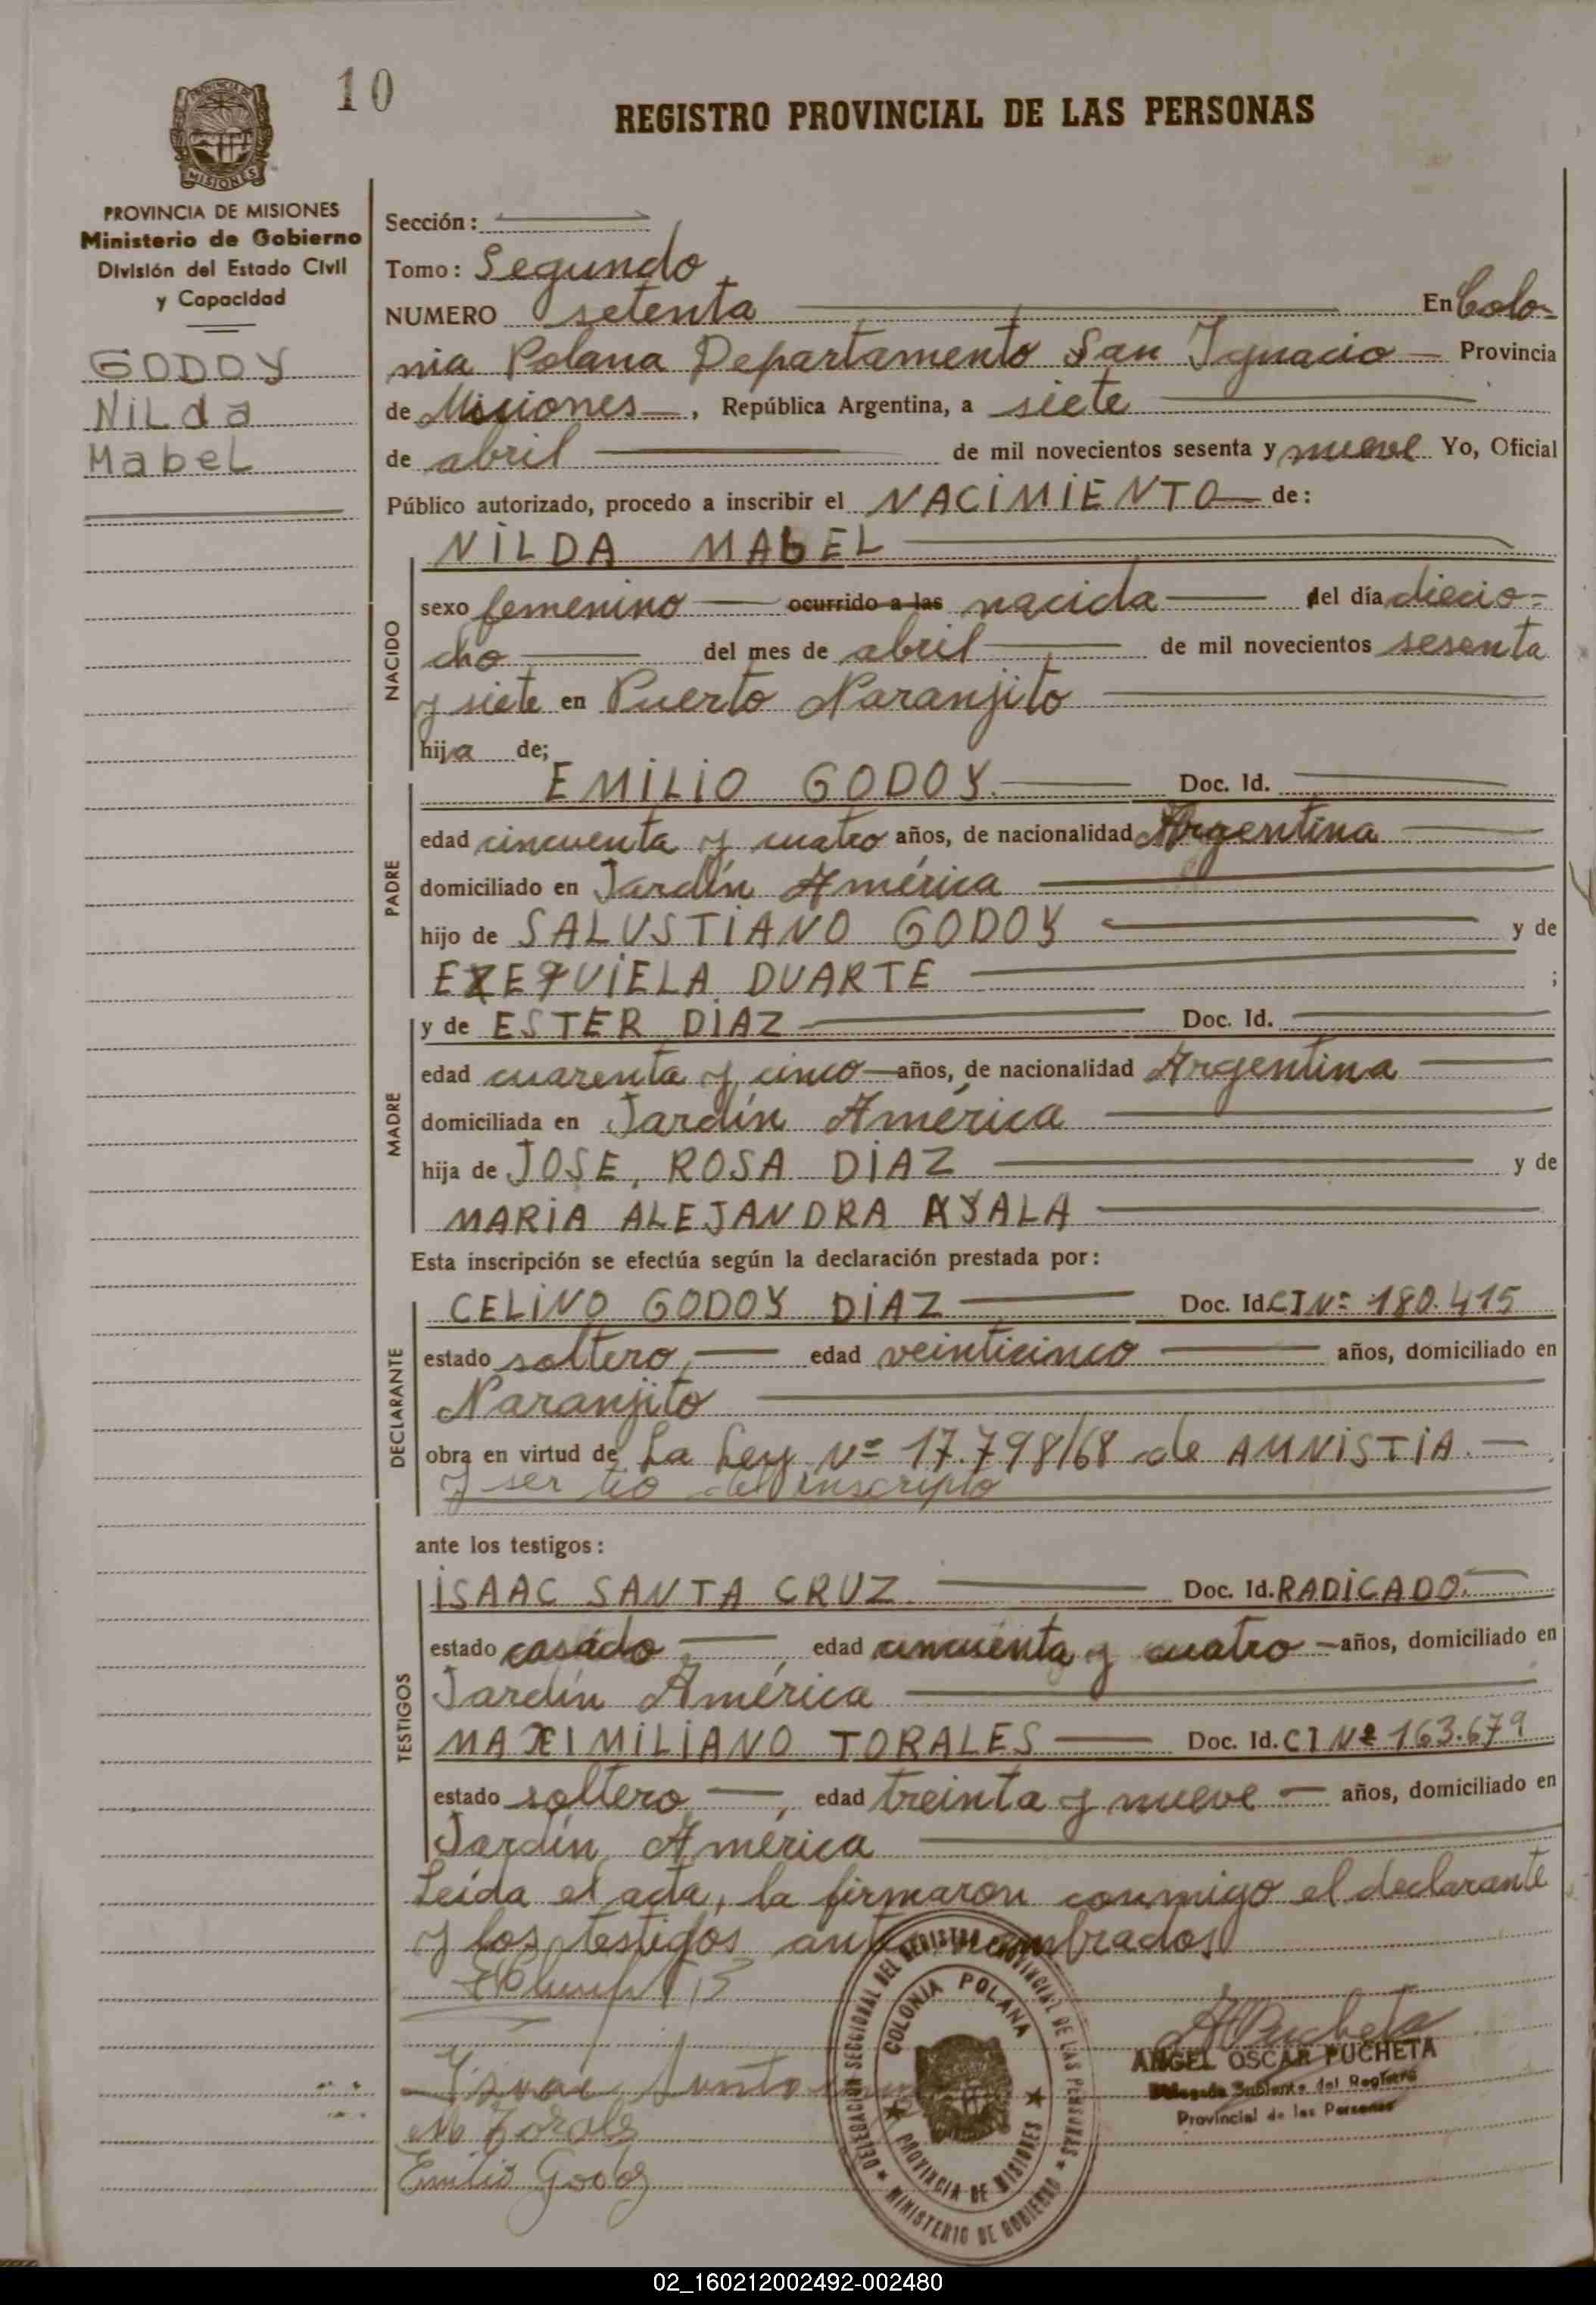 10
REGISTRO PROVINCIAL DE LAS PERSONAS
PROVINCIA DE MISIONES
PROVINCIA DE MISIONES
Ministerio de Gobierno
División del Estado Civil
y Capacidad
GODOY
NILda
MabeL
Sección:
Tomo: Segundo
NUMERO setenta En Colo-
nia Polana Departamento San Ignacio Provincia
de Misiones, República Argentina, a siete
de abril de mil novecientos sesenta y nueve Yo, Oficial
Público autorizado, procedo a inscribir el NACIMIENTO de:
NACIDO
NILDA MABEL
sexo femenino ocurrido a las nacida del día diecio=
cho del mes de abril de mil novecientos sesenta
y siete en Puerto Naranjito
hija de;
PADRE
EMILIO GODOY. Doc. Id.
edad cincuenta y cuatro años, de nacionalidad Argentina
domiciliado en Jardín América
hijo de SALUSTIANO GODOY y de
EXEQUIELA DUARTE ;
MADRE
y de ESTER DIAZ Doc. Id.
edad cuarenta y cinco años, de nacionalidad Argentina
domiciliada en Jardín América
hija de JOSE, ROSA DIAZ y de
MARIA ALEJANDRA AYALA
Esta inscripción se efectúa según la declaración prestada por:
DECLARANTE
CELINO GODOY DIAZ Doc. Id. CI Nº 180.415
estado soltero, edad veinticinco años, domiciliado en
Naranjito
obra en virtud de La Ley Nº 17.798/68 de AMNISTIA.
y ser tio del inscripto
ante los testigos:
TESTIGOS
ISAAC SANTA CRUZ Doc. Id. RADICADO.
estado casado, edad cincuenta y cuatro años, domiciliado en
Jardín América
MAXIMILIANO TORALES Doc. Id. CI Nº 163.679
estado soltero, edad treinta y nueve años, domiciliado en
Jardín América
Leída el acta, la firmaron conmigo el declarante
y los testigos ante nombrados
Isaac Santa
M Torales
Emilio Godoy
DELEGACION SECCIONAL DEL REGISTRO PROVINCIAL DE LAS PERSONAS
MINISTERIO DE GOBIERNO
COLONIA POLANA
PROVINCIA DE MISIONES
APucheta
ANGEL OSCAR PUCHETA
Delegado Suplente del Registro
Provincial de las Personas
02_160212002492-002480